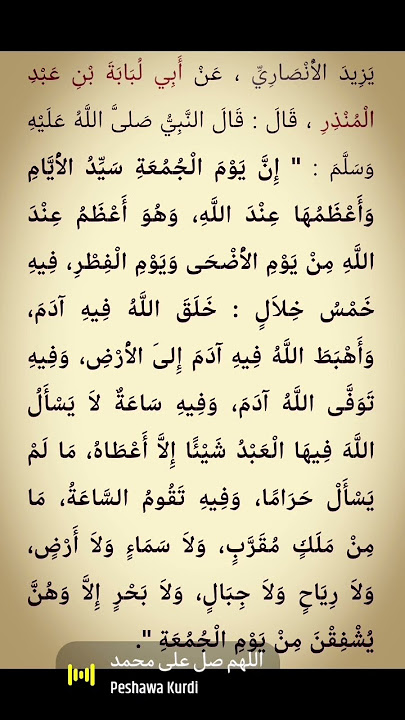 يَزِيدَ الأَنْصَارِيِّ ، عَنْ أَبِي لُبَابَةَ بْنِ عَبْدِ
الْمُنْذِرِ ، قَالَ : قَالَ النَّبِيُّ صَلىَّ اللَّهُ عَلَيْهِ
وَسَلَّمَ : " إِنَّ يَوْمَ الْجُمُعَةِ سَيِّدُ الأَيَّامِ
وَأَعْظَمُهَا عِنْدَ اللَّهِ، وَهُوَ أَعْظَمُ عِنْدَ
اللَّهِ مِنْ يَوْمِ الأَضْحَى وَيَوْمِ الْفِطْرِ، فِيهِ
خَمْسُ خِلاَلٍ : خَلَقَ اللَّهُ فِيهِ آدَمَ،
وَأَهْبَطَ اللَّهُ فِيهِ آدَمَ إِلىَ الأَرْضِ، وَفِيهِ
تَوَفَّى اللَّهُ آدَمَ، وَفِيهِ سَاعَةٌ لاَ يَسْأَلُ
اللَّهَ فِيهَا الْعَبْدُ شَيْئًا إِلاَّ أَعْطَاهُ، مَا لَمْ
يَسْأَلْ حَرَامًا، وَفِيهِ تَقُومُ السَّاعَةُ، مَا
مِنْ مَلَكٍ مُقَرَّبٍ، وَلاَ سَمَاءٍ وَلاَ أَرْضٍ،
وَلاَ رِيَاحٍ وَلاَ جِبَالٍ، وَلاَ بَحْرٍ إِلاَّ وَهُنَّ
يُشْفِقْنَ مِنْ يَوْمِ الْجُمُعَةِ ".
اللهم صل على محمد
Peshawa Kurdi